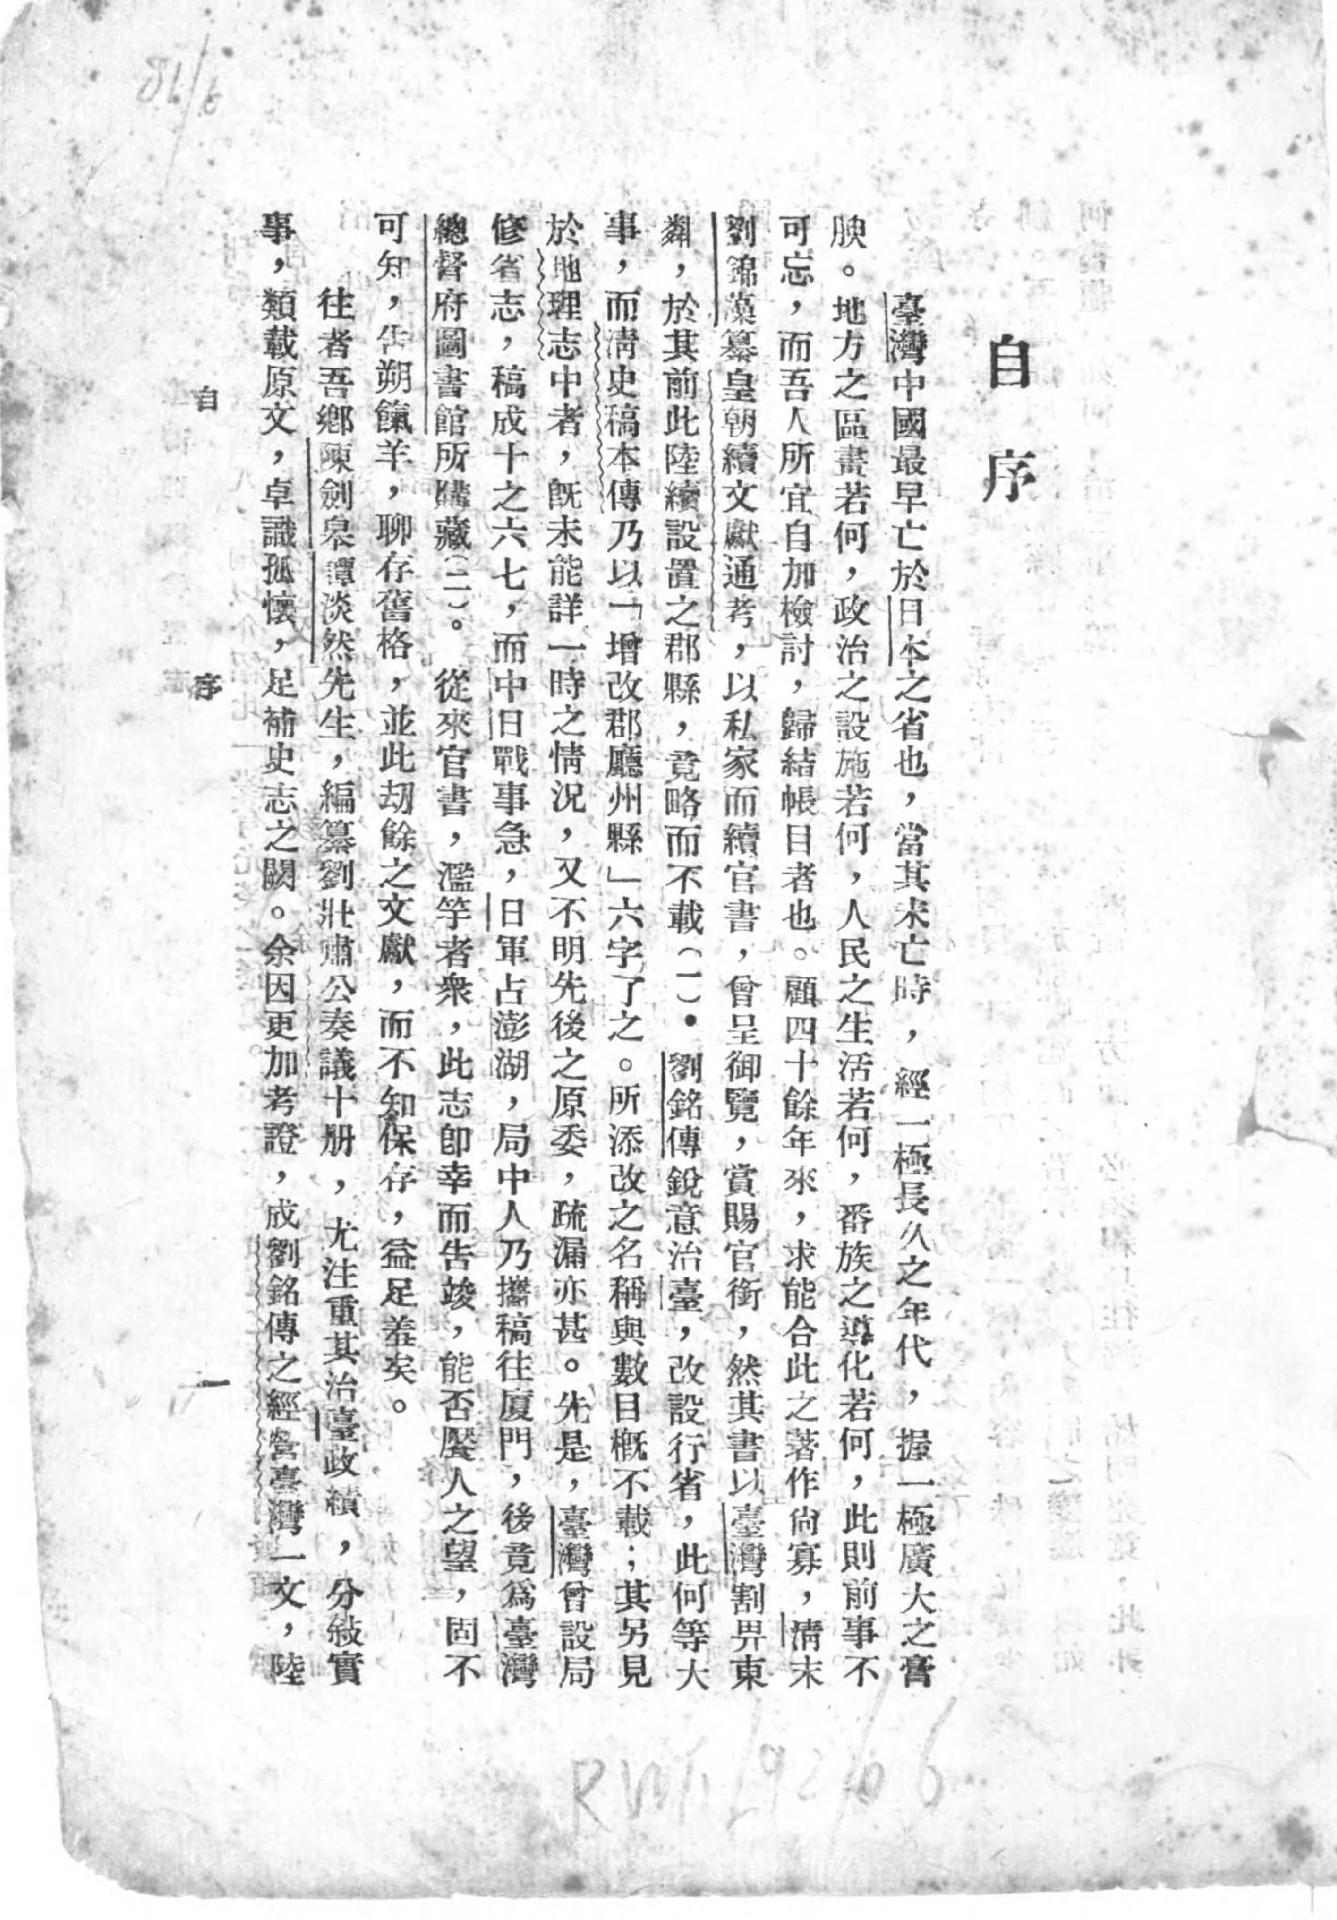 自序
臺灣中國最早亡於日本之省也，當其未亡時，經一極長久之年代，握一極廣大之膏
腴。地方之區畫若何，政治之設施若何，人民之生活若何，番族之導化若何，此則前事不
可忘，而吾人所宜自加檢討，歸結帳目者也。顧四十餘年來，求能合此之著作尙寡，清末
劉錦藻纂皇朝續文獻通考，以私家而續官書，曾呈御覽，賞賜官銜，然其書以臺灣割畀東
鄰，於其前此陸續設置之郡縣，竟略而不載(一)。劉銘傳銳意治臺，改設行省，此何等大
事，而淸史稿本傳乃以「增改郡廳州縣」六字了之。所添改之名稱與數目槪不載；其另見
於地理志中者，旣未能詳一時之情況，又不明先後之原委，疏漏亦甚。先是，臺灣曾設局
修省志，稿成十之六七，而中日戰事急，日軍占澎湖，局中人乃攜稿往廈門，後竟爲臺灣
總督府圖書館所購藏(二)。從來官書，濫竽者衆，此志卽幸而告竣，能否饜人之望，固不
可知，告朔餼羊，聊存舊格，並此刧餘之文獻，而不知保存，益足羞矣。
往者吾鄉陳劍皋譚淡然先生，編纂劉壯肅公奏議十册，尤注重其治臺政績，分敍實
事，類載原文，卓識孤懷，足補史志之闕。余因更加考證，成劉銘傳之經營臺灣一文，陸
自序
一
86/6